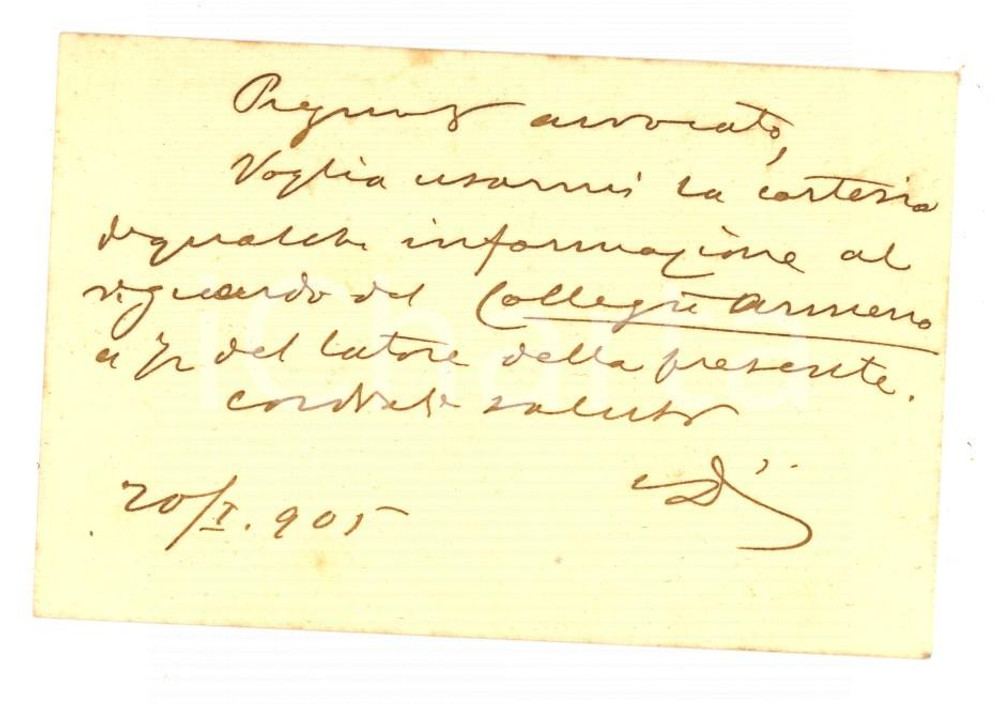 Pregmo avvocato,
Voglia usarmi la cortesia
di qualche informazione al
riguardo del Collegio Armeno
a del latore della presente.
cordiale saluto
20/I. 905
iCharta